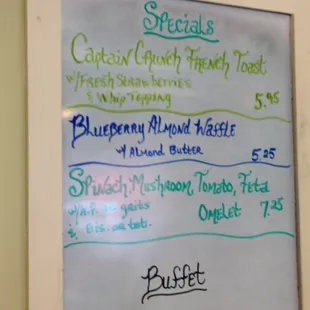 Specials
Captain Crunch French Toast
w/ Fresh Strawberries
& Whip Topping 5.95
Blueberry Almond Waffle
w/ Almond Butter 5.25
Spinach, Mushroom, Tomato, Feta
w/ grits Omelet 7.25
& Bis. or
Buffet